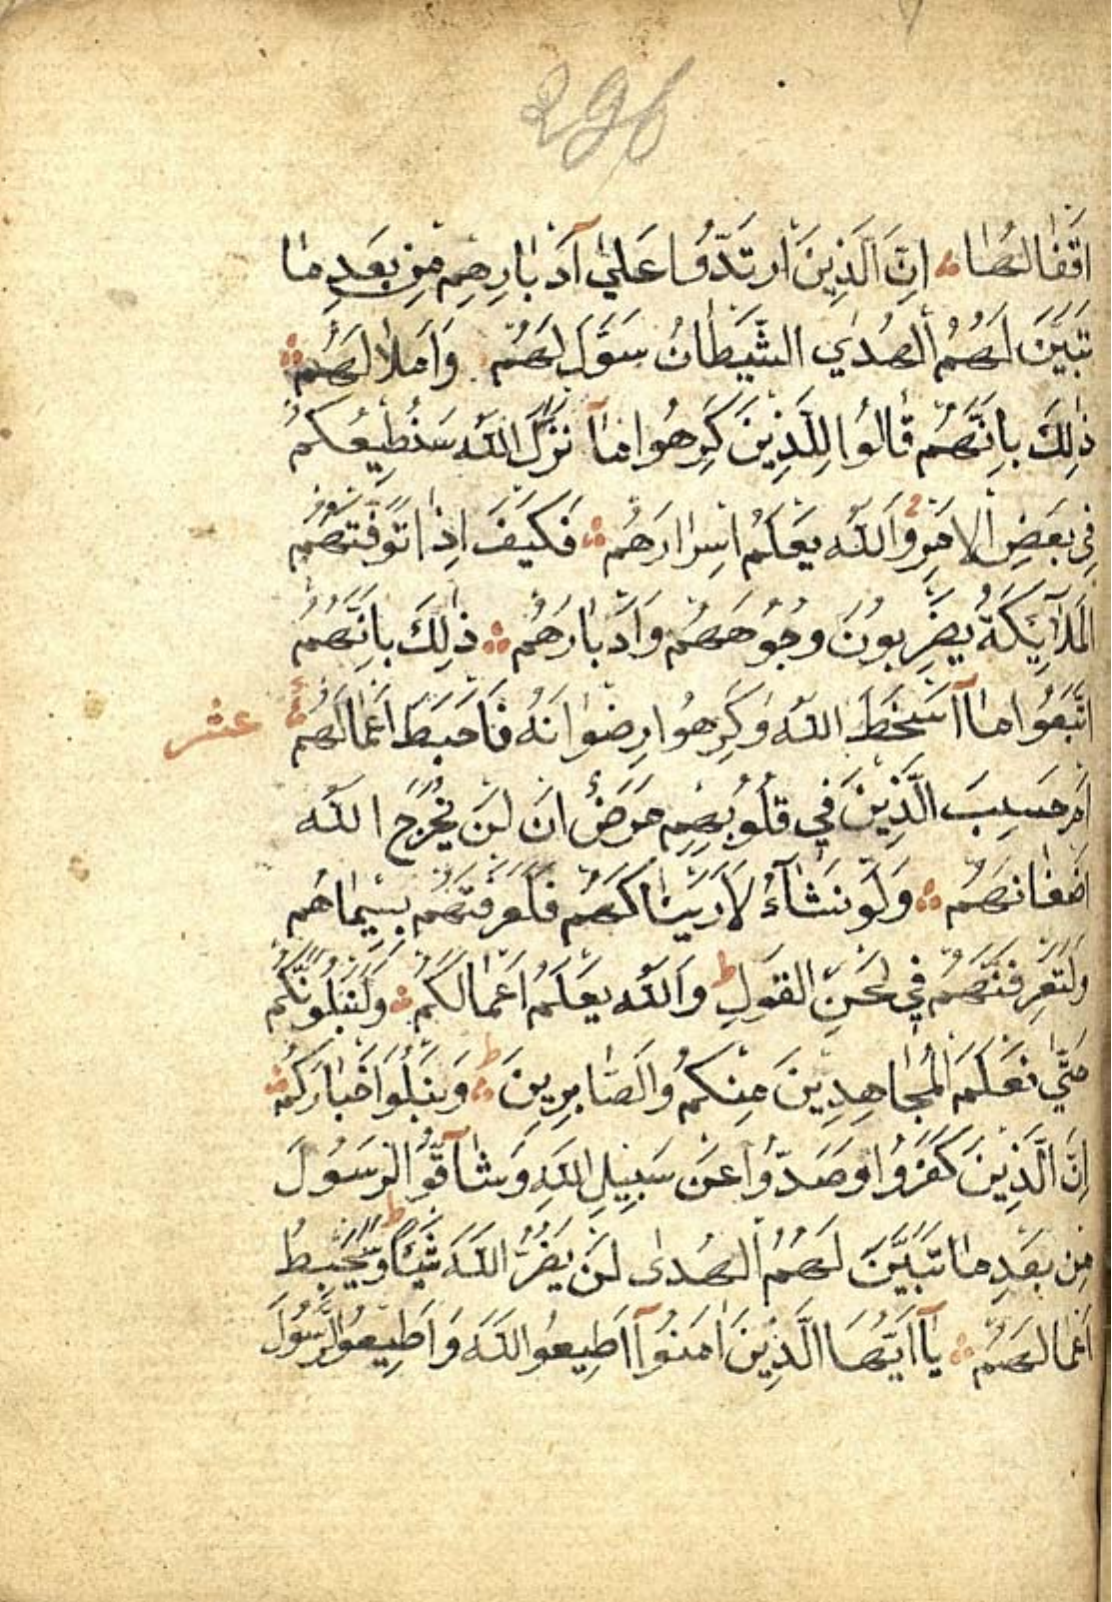 296
اَقْفَالُهَا ؞ اِنَّ الَّذِينَ ارْتَدُّوا عَلٰي آَدْبَارِهِمْ مِنْ بَعْدِ مَا
تَبَيَّنَ لَهُمُ الْهُدَي الشَّيْطَانُ سَوَّلَ لَهُمْ وَاَمْلَا لَهُمْ ؞
ذٰلِكَ بِاَنَّهُمْ قَالُوا لِلَّذِينَ كَرِهُوا مَآ نَزَّلَ اللّٰهُ سَنُطِيعُكُمْ
فِي بَعْضِ الْاَمْرِ وَاللّٰهُ يَعْلَمُ اِسْرَارَهُمْ ؞ فَكَيْفَ اِذَا تَوَفَّتْهُمُ
الْمَلَآئِكَةُ يَضْرِبُونَ وُجُوهَهُمْ وَاَدْبَارَهُمْ ؞ ذٰلِكَ بِاَنَّهُمُ
اتَّبَعُوا مَآ اَسْخَطَ اللّٰهَ وَكَرِهُوا رِضْوَانَهُ فَاَحْبَطَ اَعْمَالَهُمْ ؞ عشر
اَمْ حَسِبَ الَّذِينَ فِي قُلُوبِهِمْ مَرَضٌ اَنْ لَنْ يُخْرِجَ اللّٰهُ
اَضْغَانَهُمْ ؞ وَلَوْ نَشَآءُ لَاَرَيْنَاكَهُمْ فَلَعَرَفْتَهُمْ بِسِيمَاهُمْ
وَلَتَعْرِفَنَّهُمْ فِي لَحْنِ الْقَوْلِ ط وَاللّٰهُ يَعْلَمُ اَعْمَالَكُمْ ؞ وَلَنَبْلُوَنَّكُمْ
حَتّٰي نَعْلَمَ الْمُجَاهِدِينَ مِنْكُمْ وَالصَّابِرِينَ ط ؞ وَنَبْلُوَا اَخْبَارَكُمْ ؞
اِنَّ الَّذِينَ كَفَرُوا وَصَدُّوا عَنْ سَبِيلِ اللّٰهِ وَشَآقُّوا الرَّسُولَ
مِنْ بَعْدِ مَا تَبَيَّنَ لَهُمُ الْهُدٰى لَنْ يَضُرُّ اللّٰهَ شَيْئًا ط وَسَيُحْبِطُ
اَعْمَالَهُمْ ؞ يَآ اَيُّهَا الَّذِينَ اٰمَنُوآ اَطِيعُوا اللّٰهَ وَاَطِيعُوا الرَّسُولَ